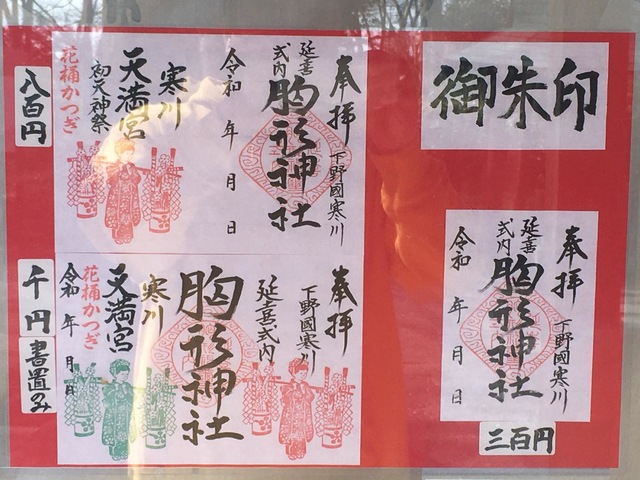 御朱印
奉拝
下野國寒川
延喜
式内
胸形神社
令和 年 月 日
三百円
奉拝
下野國寒川
延喜
式内
胸形神社
令和 年 月 日
寒川
天満宮
初天神祭
花桶かつぎ
八百円
奉拝
下野國寒川
延喜式内
胸形神社
寒川
天満宮
花桶かつぎ
令和 年 月 日
千円
書置み